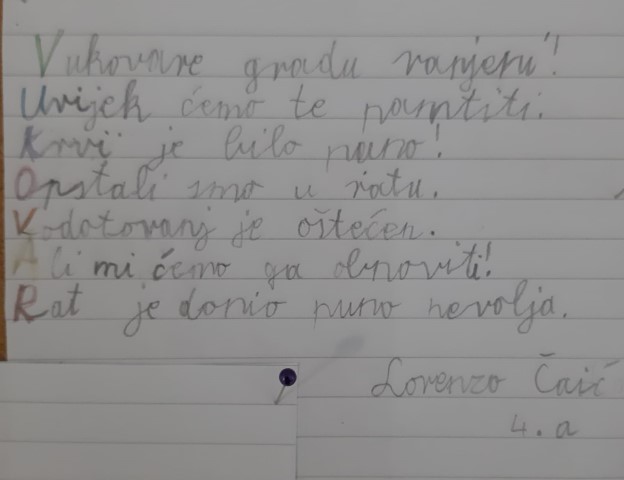 Vukovare gradu ranjeni!
Uvijek ćemo te pamtiti.
Krvi je bilo puno!
Opstali smo u ratu.
Vodotoranj je oštećen.
Ali mi ćemo ga obnoviti!
Rat je donio puno nevolja.
Lorenzo Čaić
4. a